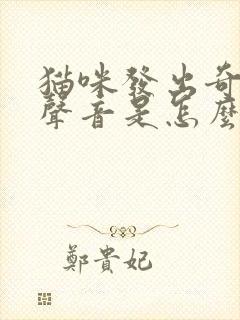 猫咪發出奇
聲音是怎麼
鄭貴妃